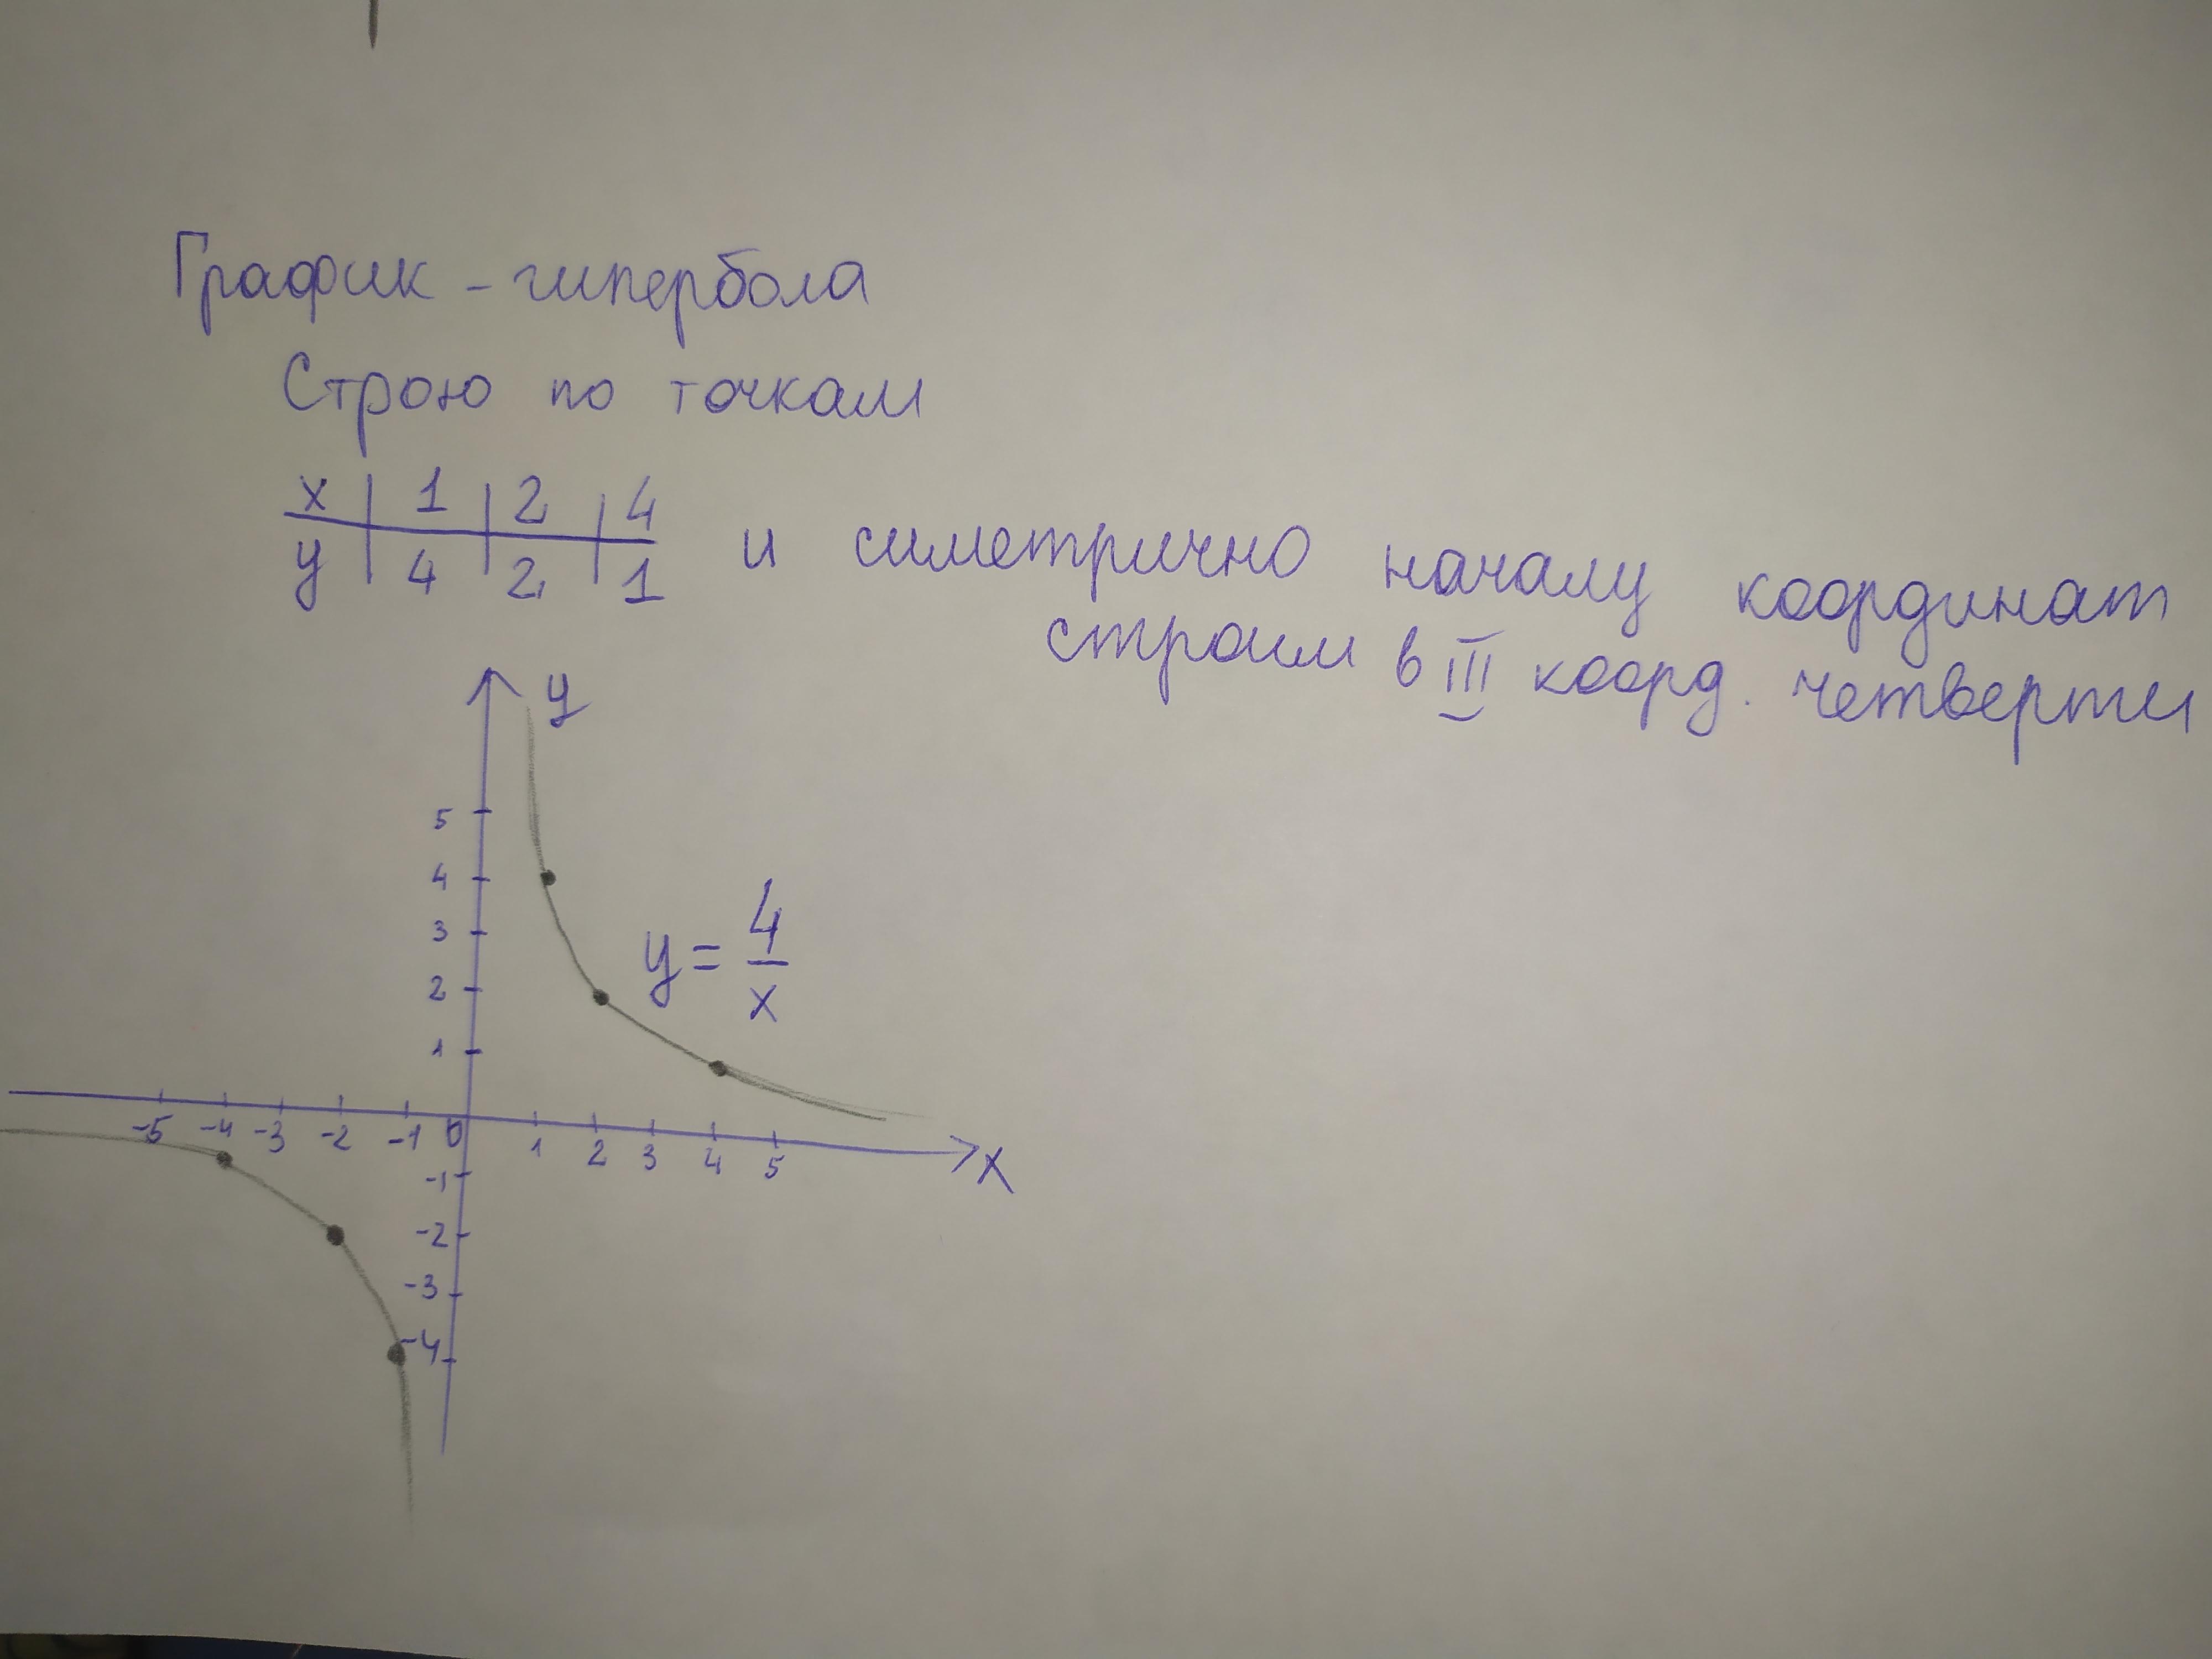 График - гипербола
Строю по точкам
x | 1 | 2 | 4
y | 4 | 2 | 1
и симетрично началу координат
строим в III коорд. четверти
y
5
4
3
2
1
y = 4/x
-5 -4 -3 -2 -1 0 1 2 3 4 5 x
-1
-2
-3
-4